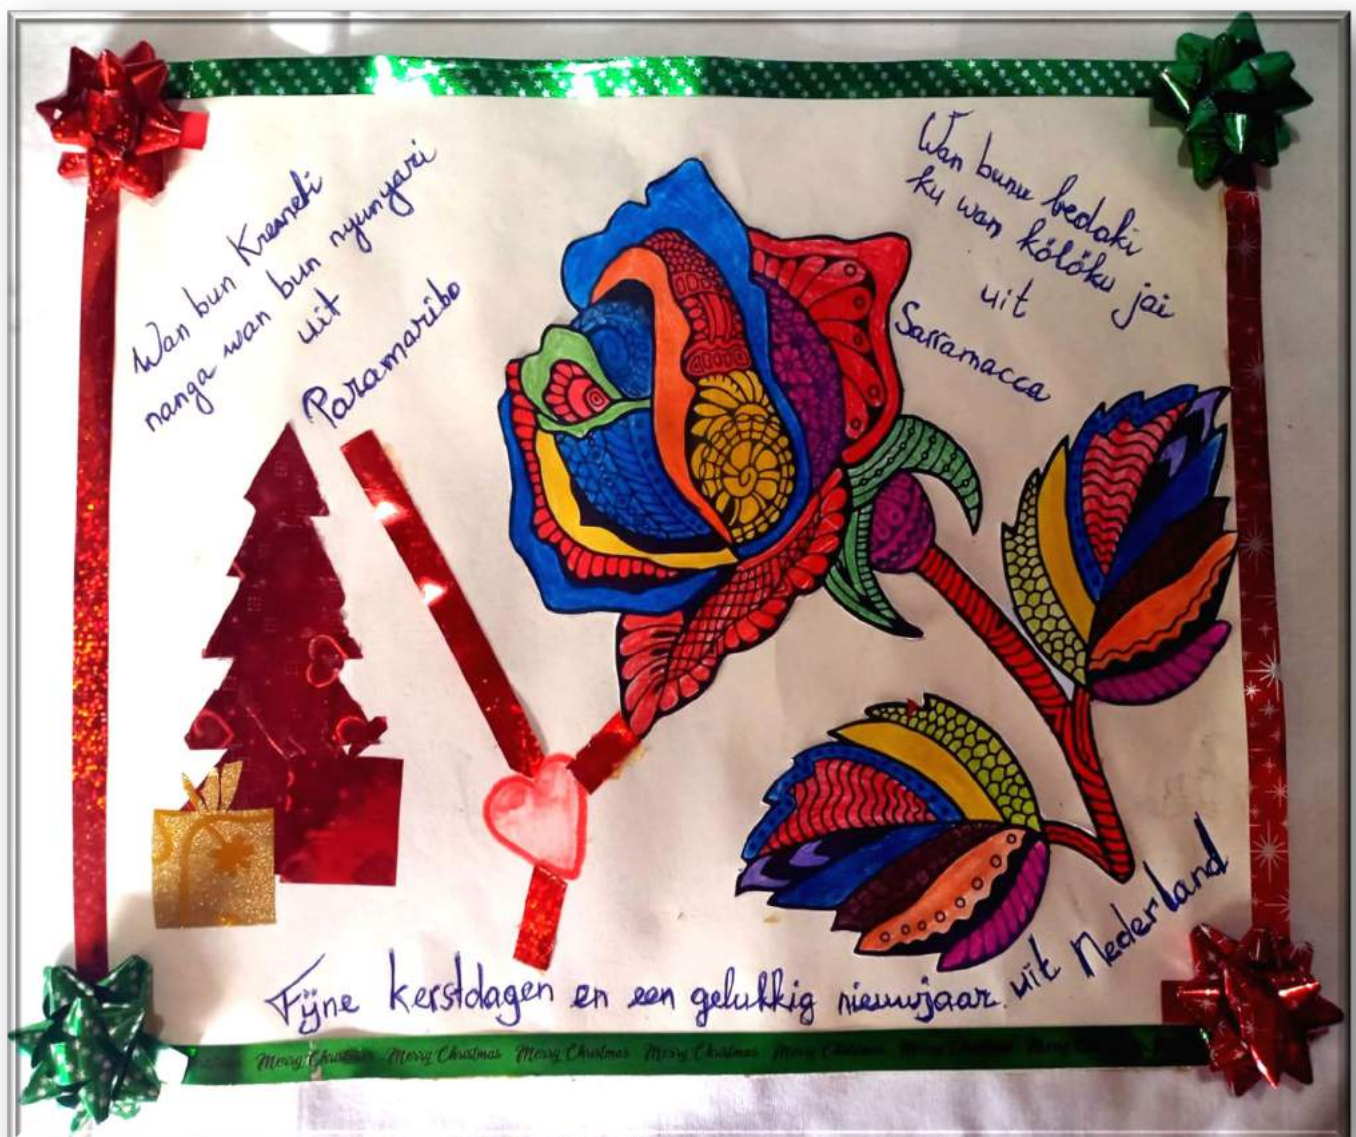 Wan bun Kresneti
nanga wan bun nyunyari
uit
Paramaribo
Wan bunu bedaki
ku wan kölöku jai
uit
Sarramacca
Fijne kerstdagen en een gelukkig nieuwjaar. uit Nederland
Merry Christmas Merry Christmas Merry Christmas Merry Christmas Merry Christmas